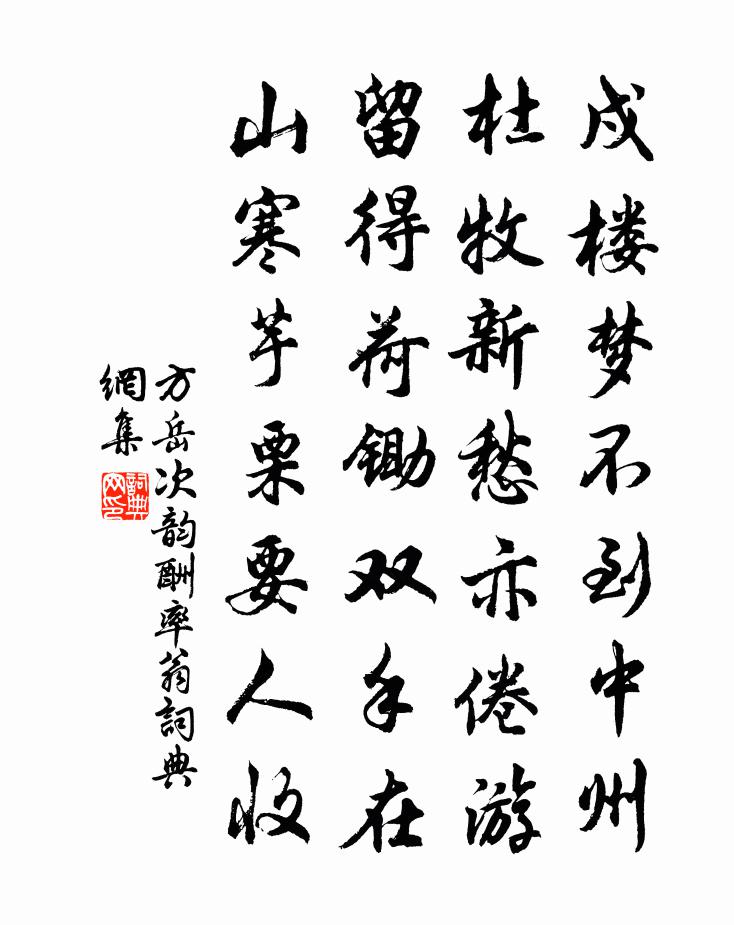 戍楼梦不到中州
杜牧新愁亦倦游
留得荷锄双手在
山寒芋栗要人收
方岳次韵酬率翁詞典
網集
詞典
网印